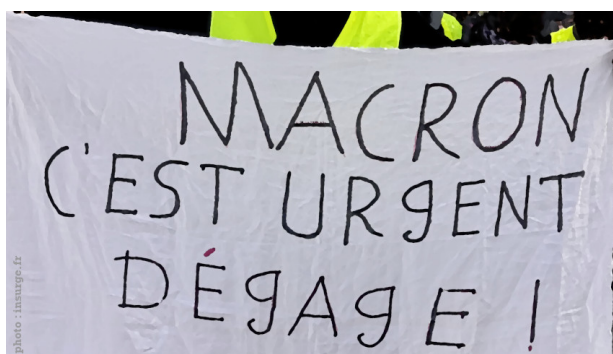 MACRON
C'EST URgENT
DÉgAgE !
photo : insurge.fr